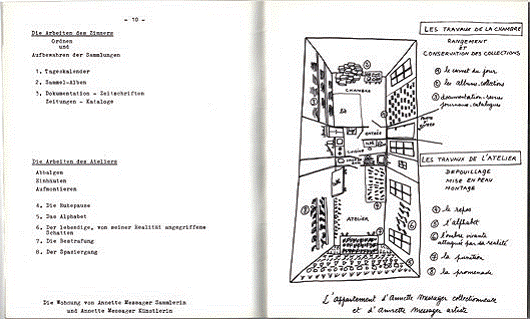 - 10 -
Die Arbeiten des Zimmers
Ordnen
und
Aufbewahren der Sammlungen
1. Tageskalender
2. Sammel-Alben
3. Dokumentation - Zeitschriften
Zeitungen - Kataloge
Die Arbeiten des Ateliers
Abbalgen
Einhauten
Aufmontieren
4. Die Ruhepause
5. Das Alphabet
6. Der lebendige, von meiner Realität angegriffene
Schatten
7. Die Bestrafung
8. Der Spaziergang
Die Wohnung von Annette Messager Sammlerin
und Annette Messager Künstlerin
LES TRAVAUX DE LA CHAMBRE
RANGEMENT
ET
CONSERVATION DES COLLECTIONS
① le carnet du jour
② les albums-collections
③ documentation-revues
journaux-catalogues
CHAMBRE
Lit
ENTRÉE
CUISINE
ATELIER
LES TRAVAUX DE L'ATELIER
DEPOUILLAGE
MISE EN PEAU
MONTAGE
④ le repos
⑤ l'alphabet
⑥ l'ombre vivante
attaquée par sa réalité
⑦ la punition
⑧ la promenade
L'appartement d'Annette Messager collectionneuse
et d'Annette Messager artiste